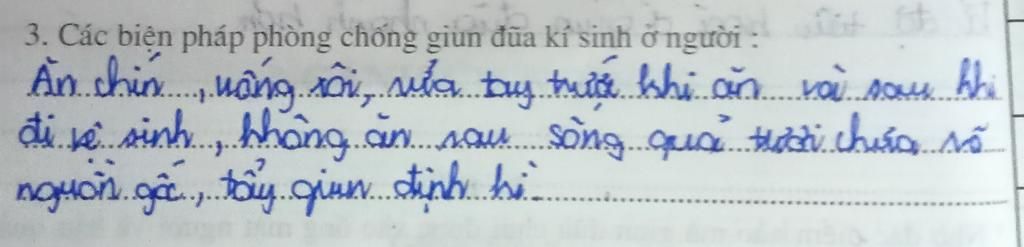 3. Các biện pháp phòng chống giun đũa kí sinh ở người :
Ăn chín, uống sôi, rửa tay trước khi ăn và sau khi
đi vệ sinh, không ăn rau sống quả tươi chưa rõ
nguồn gốc, tẩy giun định kì.